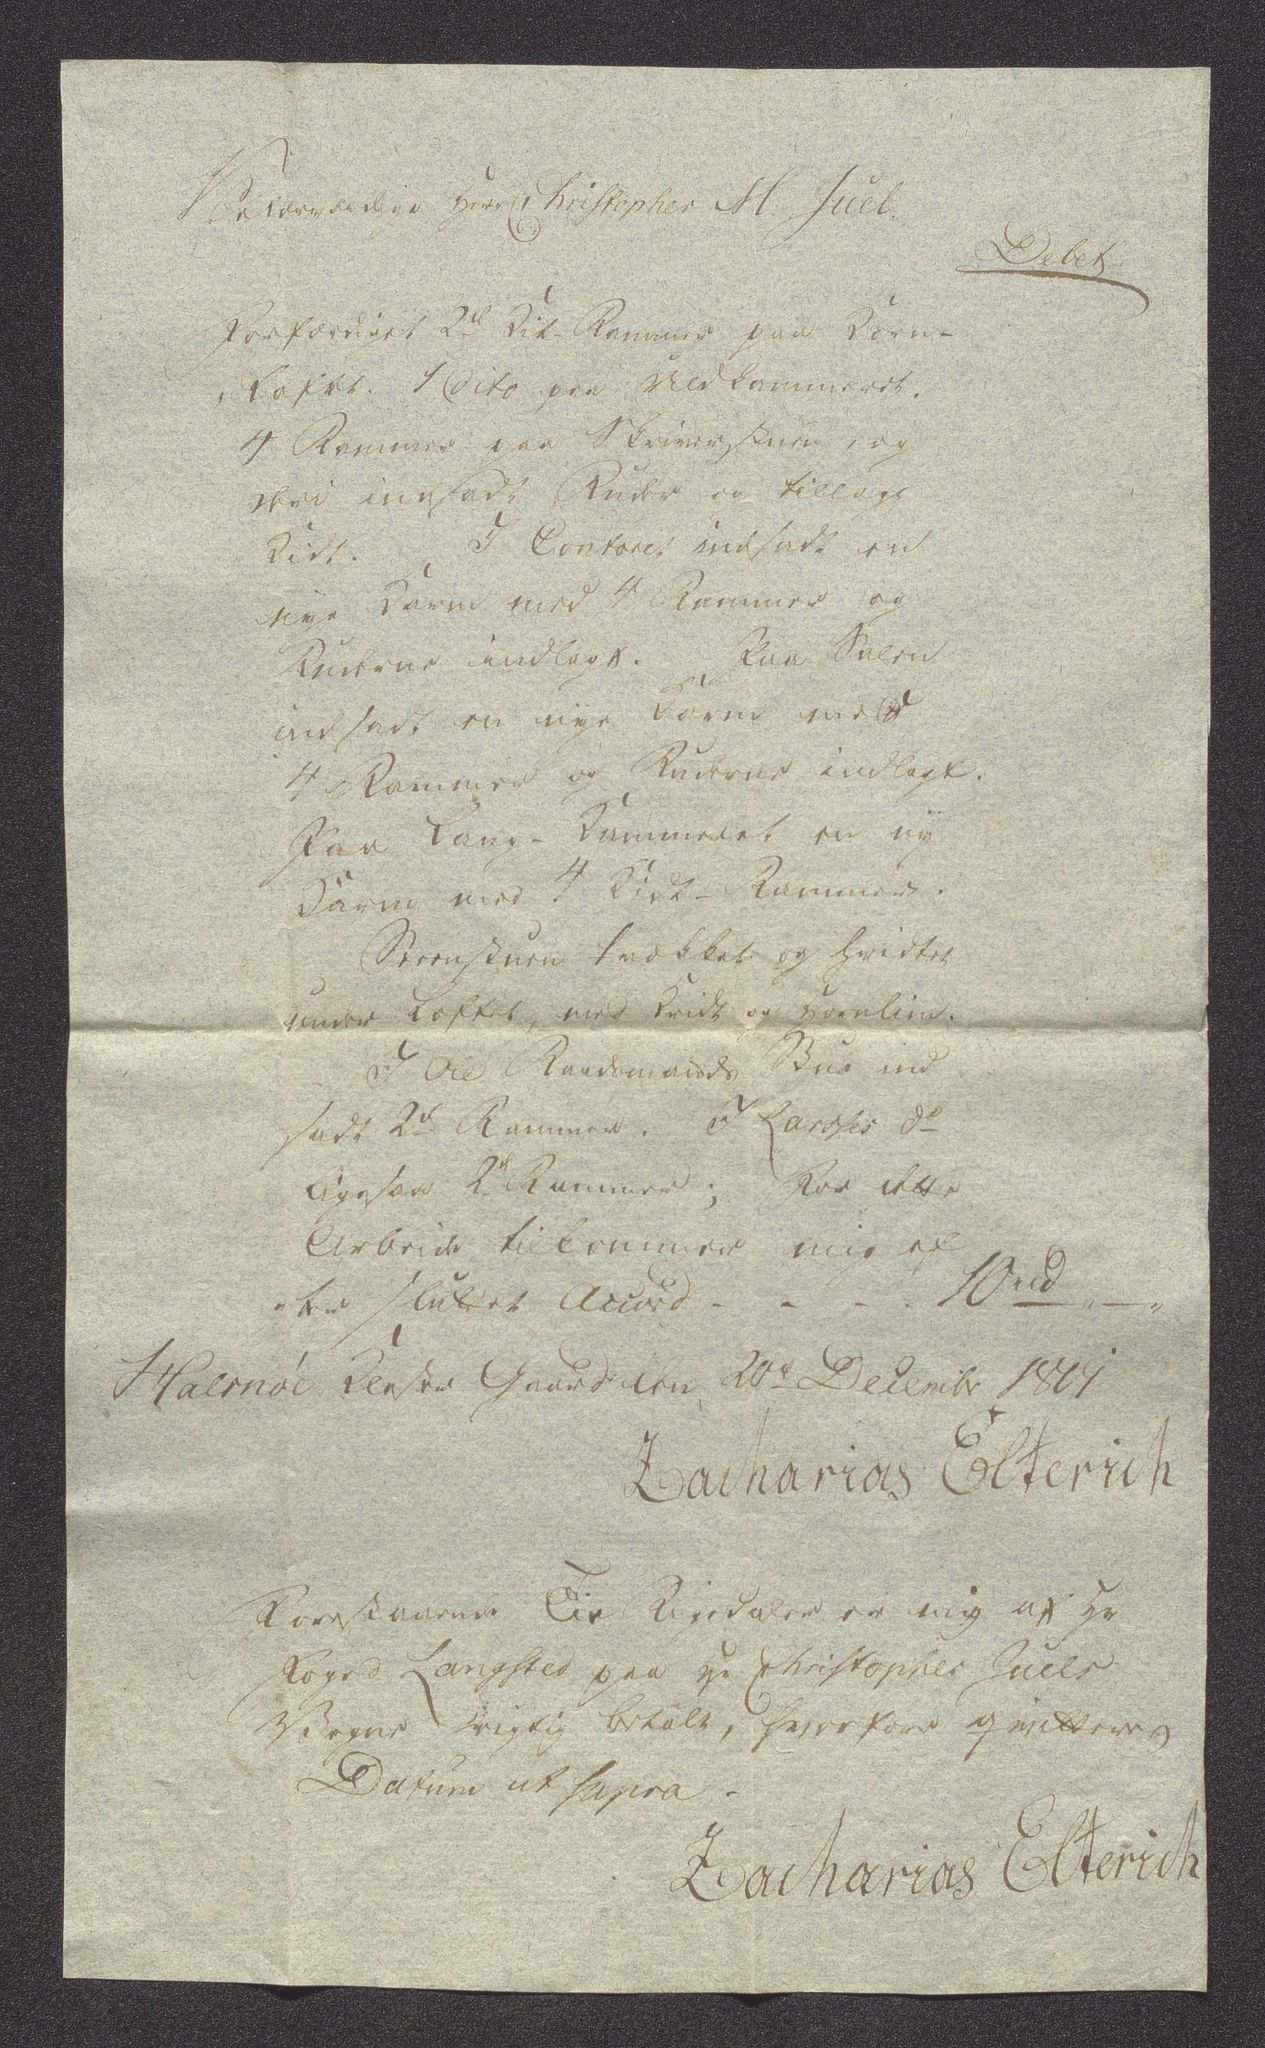 Velærværdige Herr Christopher M. Juel.
Debet
Forfærdiget 2de Kit-Rammer paa Korn-
Loftet. 1 dito paa Melkammeret.
4 Rammer paa Skriverstuen, og
deri indsadt Ruder og tillagt
Kidt. I Contoret indsadt en
nye Karm med 4 Rammer og
Ruderne indlagt. Paa Salen
indsadt en nye Karm med
4 Rammer og Ruderne indlagt.
Paa Lang-Kammeret en ny
Karm med 4 Kidt-Rammer.
trækket og hvidtet
under Loftet, med Kridt og Hornlim.
I Ole Raadsmands Stue ind
sadt 2de Rammer. I Larsses do
ligesaa 2de Rammer; For dette
Arbeide tilkommer mig ef
-ter sluttet Accord - - - - 10 rd „ — „
Halsnøe Kloster Gaard den 20de December 1801
Zacharias Elterich
Forestaaende Tie Rigsdaler er mig af Hr
Foged Langsted paa Hr Christopher Juels
Vegne rigtig betalt, hvorfore qvitteres
Datum ut supra -
Zacharias Elterich